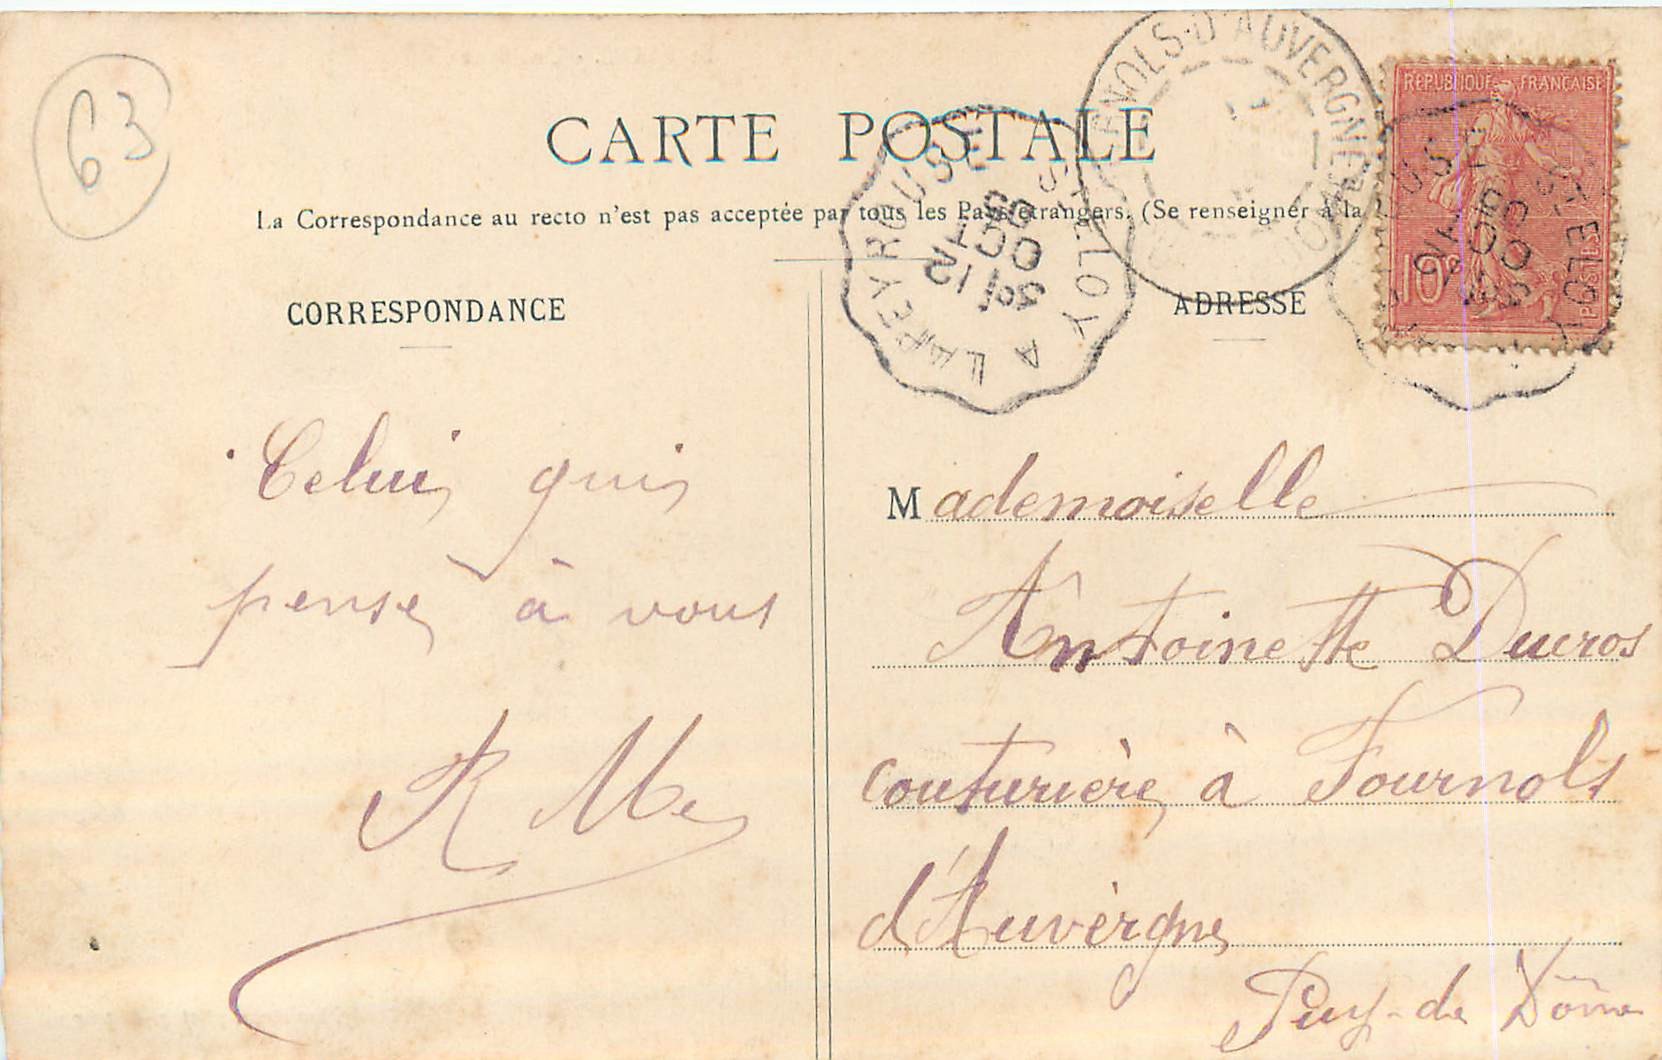 63
CARTE POSTALE
La Correspondance au recto n'est pas acceptée par tous les Pays étrangers. (Se renseigner à la
CORRESPONDANCE
ADRESSE
RÉPUBLIQUE FRANÇAISE
10c
POSTES
ST-ELOY A LAPEYROUSE
12
OCT
05
NOLS-D'AUVERGNE
Celui qui
pense à vous
Mademoiselle
Antoinette Ducros
couturière à Fournols
d'Auvergne
Puy-de Dôme